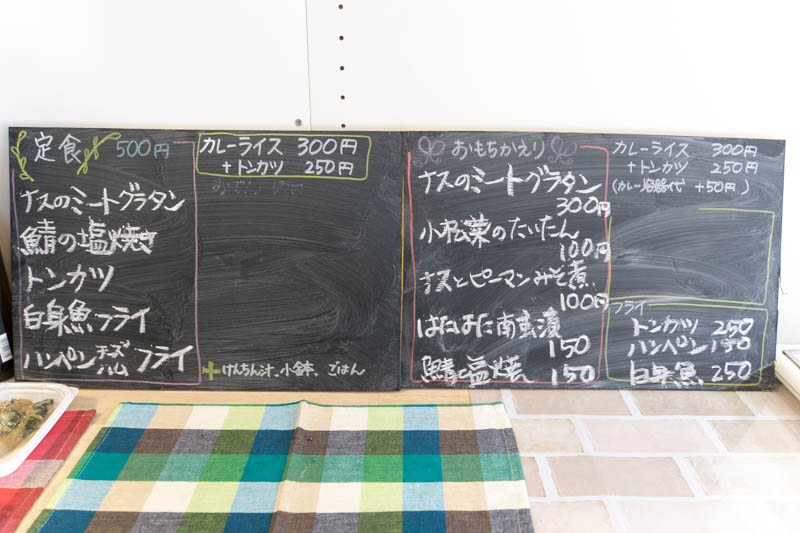 定食 500円
ナスのミートグラタン
鯖の塩焼き
トンカツ
白身魚フライ
ハンペンチーズハムフライ
カレーライス 300円
+トンカツ 250円
+けんちん汁、小鉢、ごはん
おもちかえり
ナスのミートグラタン
300円
小松菜のたいたん
100円
ナスとピーマンみそ煮
100円
南蛮漬
150
鯖の塩焼 150
カレーライス 300円
+トンカツ 250円
(カレー容器代 +50円)
フライ
トンカツ 250
ハンペン 150
白身魚 250